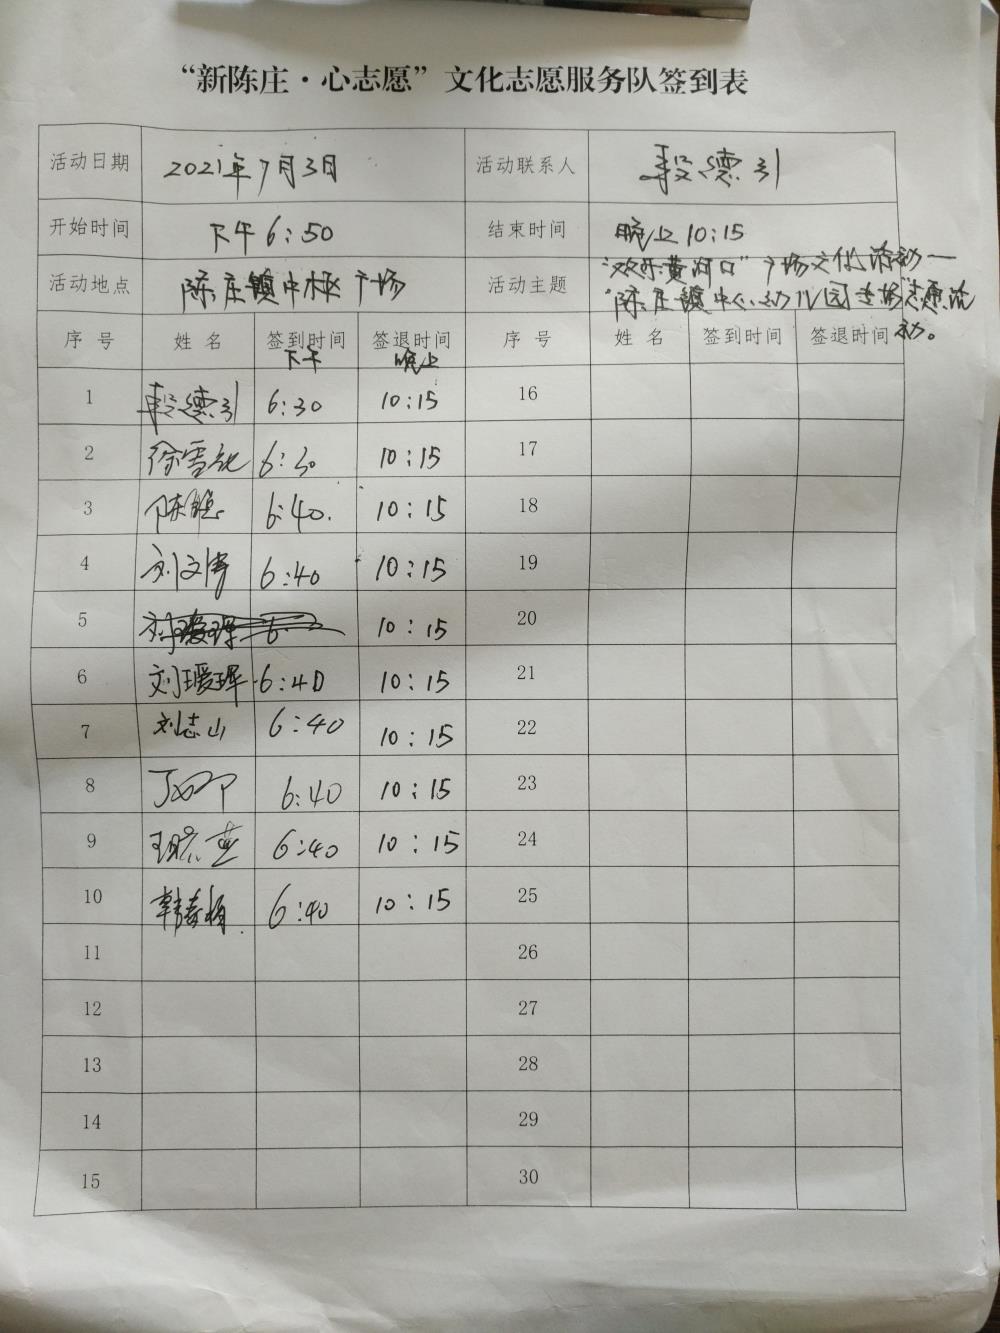 “新陈庄·心志愿”文化志愿服务队签到表
活动日期 2021年7月3日 活动联系人 段德引
开始时间 下午6:50 结束时间 晚上10:15
活动地点 陈庄镇中心广场 活动主题 “欢乐黄河口”广场文化活动一
“陈庄镇中心幼儿园专场”志愿活
动。
序号 姓名 签到时间 签退时间 序号 姓名 签到时间 签退时间
下午 晚上
1 段德引 6:30 10:15 16
2 徐雪 6:30 10:15 17
3 陈 6:40. 10:15 18
4 刘文博 6:40 10:15 19
5 10:15 20
6 刘瑷珲 6:40 10:15 21
7 刘志山 6:40 10:15 22
8 6:40 10:15 23
9 王 燕 6:40 10:15 24
10 韩春梅 6:40 10:15 25
11 26
12 27
13 28
14 29
15 30